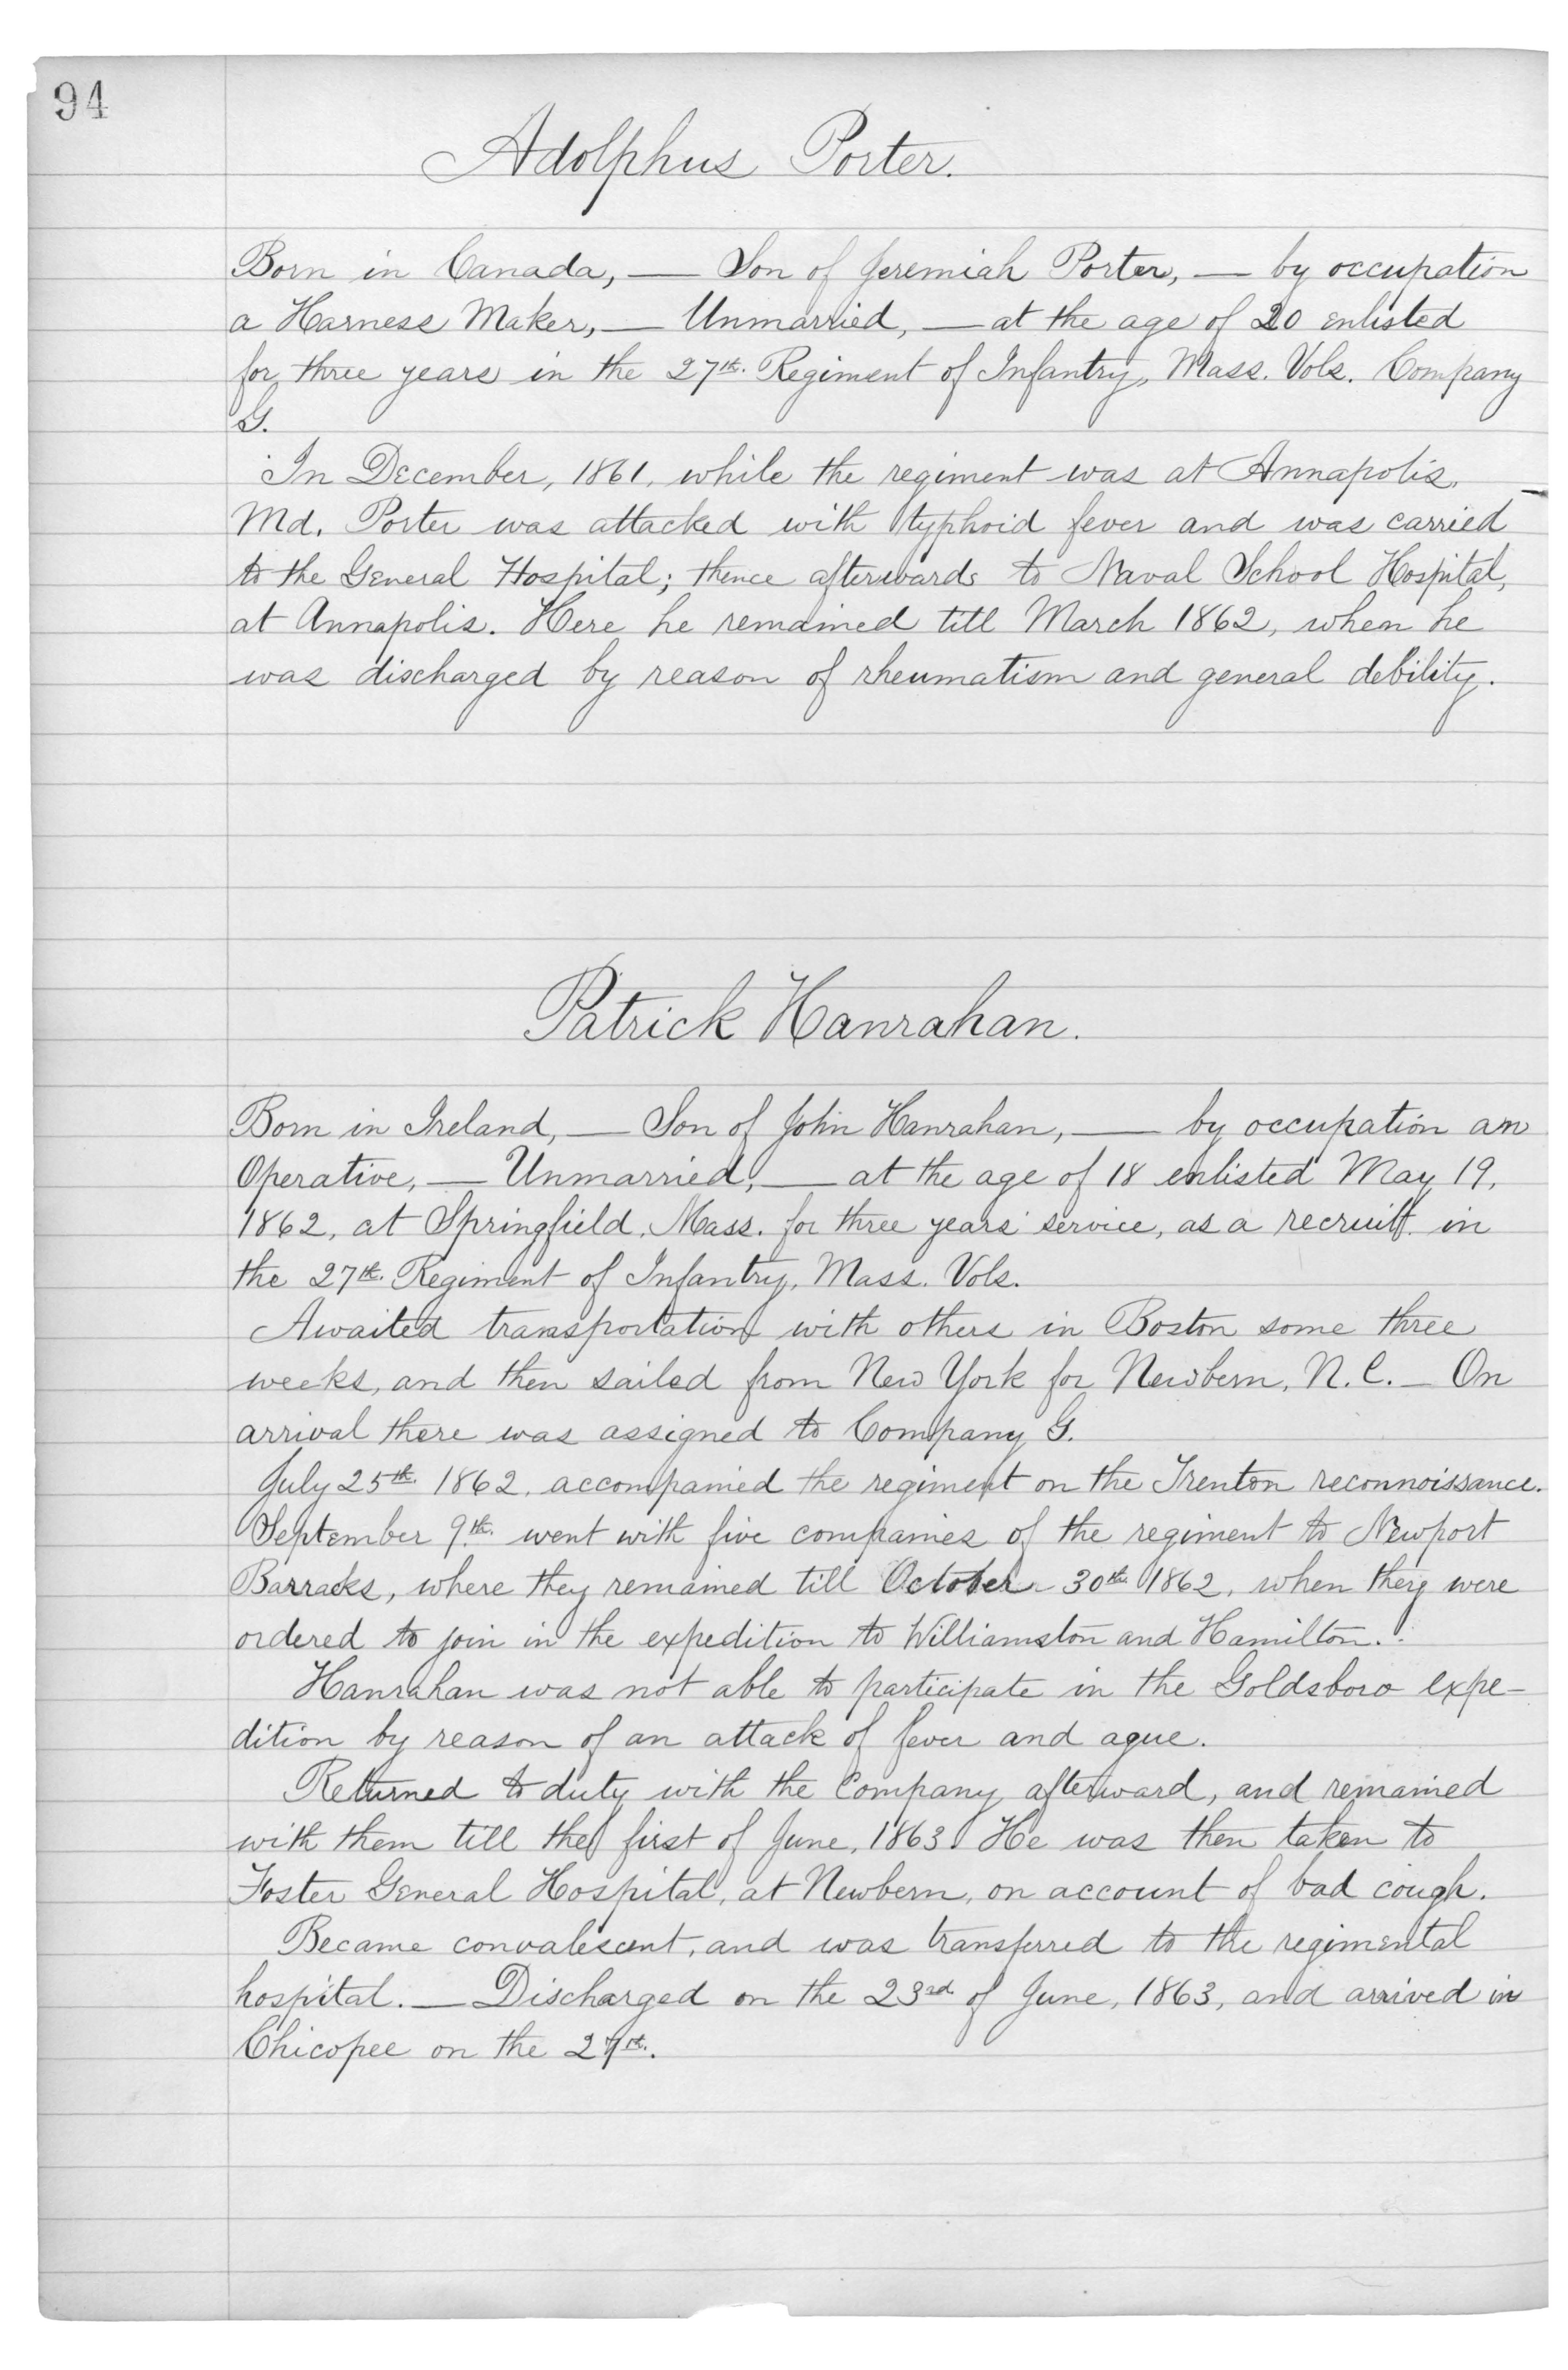 94
Adolphus Porter.
Born in Canada, — Son of Jeremiah Porter, — by occupation
a Harness Maker, — Unmarried, — at the age of 20 enlisted
for three years in the 27th. Regiment of Infantry, Mass. Vols. Company
G.
In December, 1861, while the regiment was at Annapolis,
Md. Porter was attacked with typhoid fever and was carried
to the General Hospital; thence afterwards to Naval School Hospital,
at Annapolis. Here he remained till March 1862, when he
was discharged by reason of rheumatism and general debility.
Patrick Hanrahan.
Born in Ireland, — Son of John Hanrahan, — by occupation an
Operative, — Unmarried, — at the age of 18 enlisted May 19,
1862, at Springfield, Mass. for three years' service, as a recruit in
the 27th. Regiment of Infantry, Mass. Vols.
Awaited transportation with others in Boston some three
weeks, and then sailed from New York for Newbern, N.C. — On
arrival there was assigned to Company G.
July 25th. 1862, accompanied the regiment on the Trenton reconnoissance.
September 9th. went with five companies of the regiment to Newport
Barracks, where they remained till October 30th. 1862, when they were
ordered to join in the expedition to Williamston and Hamilton.
Hanrahan was not able to participate in the Goldsboro expe-
dition by reason of an attack of fever and ague.
Returned to duty with the Company afterward, and remained
with them till the first of June, 1863. He was then taken to
Foster General Hospital, at Newbern, on account of bad cough.
Became convalescent, and was transferred to the regimental
hospital. — Discharged on the 23rd. of June, 1863, and arrived in
Chicopee on the 27th.